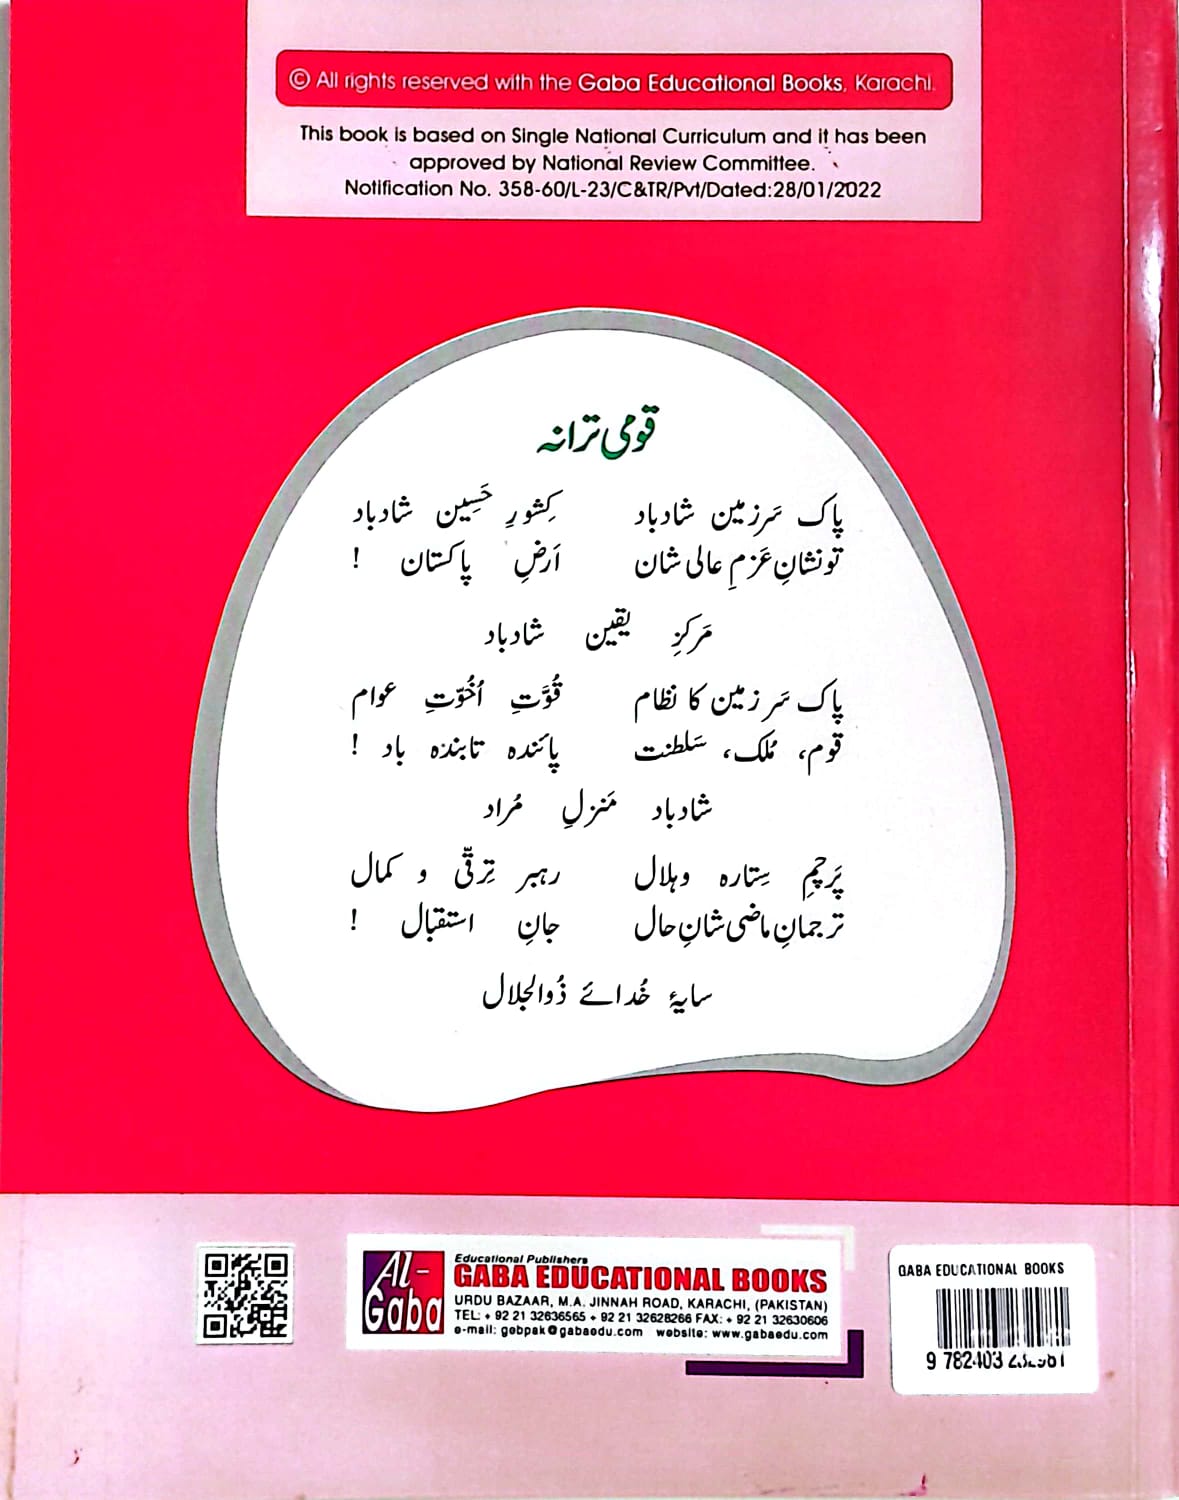 © All rights reserved with the Gaba Educational Books, Karachi.
This book is based on Single National Curriculum and it has been
approved by National Review Committee.
Notification No. 358-60/L-23/C&TR/Pvt/Dated:28/01/2022
قومی ترانہ
پاک سَرزمین شادباد کِشورِ حَسِین شادباد
تونشانِ عَزمِ عالی شان اَرضِ پاکستان !
مَرکزِ یقین شادباد
پاک سَرزمین کا نظام قُوَّتِ اُخُوّتِ عوام
قوم، مُلک، سَلطنت پائندہ تابندہ باد !
شادباد مَنزلِ مُراد
پَرچمِ سِتارہ وہلال رہبر تِرقّی و کمال
ترجمانِ ماضی شانِ حال جانِ استقبال !
سایۂ خُدائے ذُوالجلال
Al-Gaba
Educational Publishers
GABA EDUCATIONAL BOOKS
URDU BAZAAR, M.A. JINNAH ROAD, KARACHI, (PAKISTAN)
TEL: + 92 21 32636565 + 92 21 32628266 FAX: + 92 21 32630606
e-mail: gebpak@gabaedu.com website: www.gabaedu.com
GABA EDUCATIONAL BOOKS
9 782403